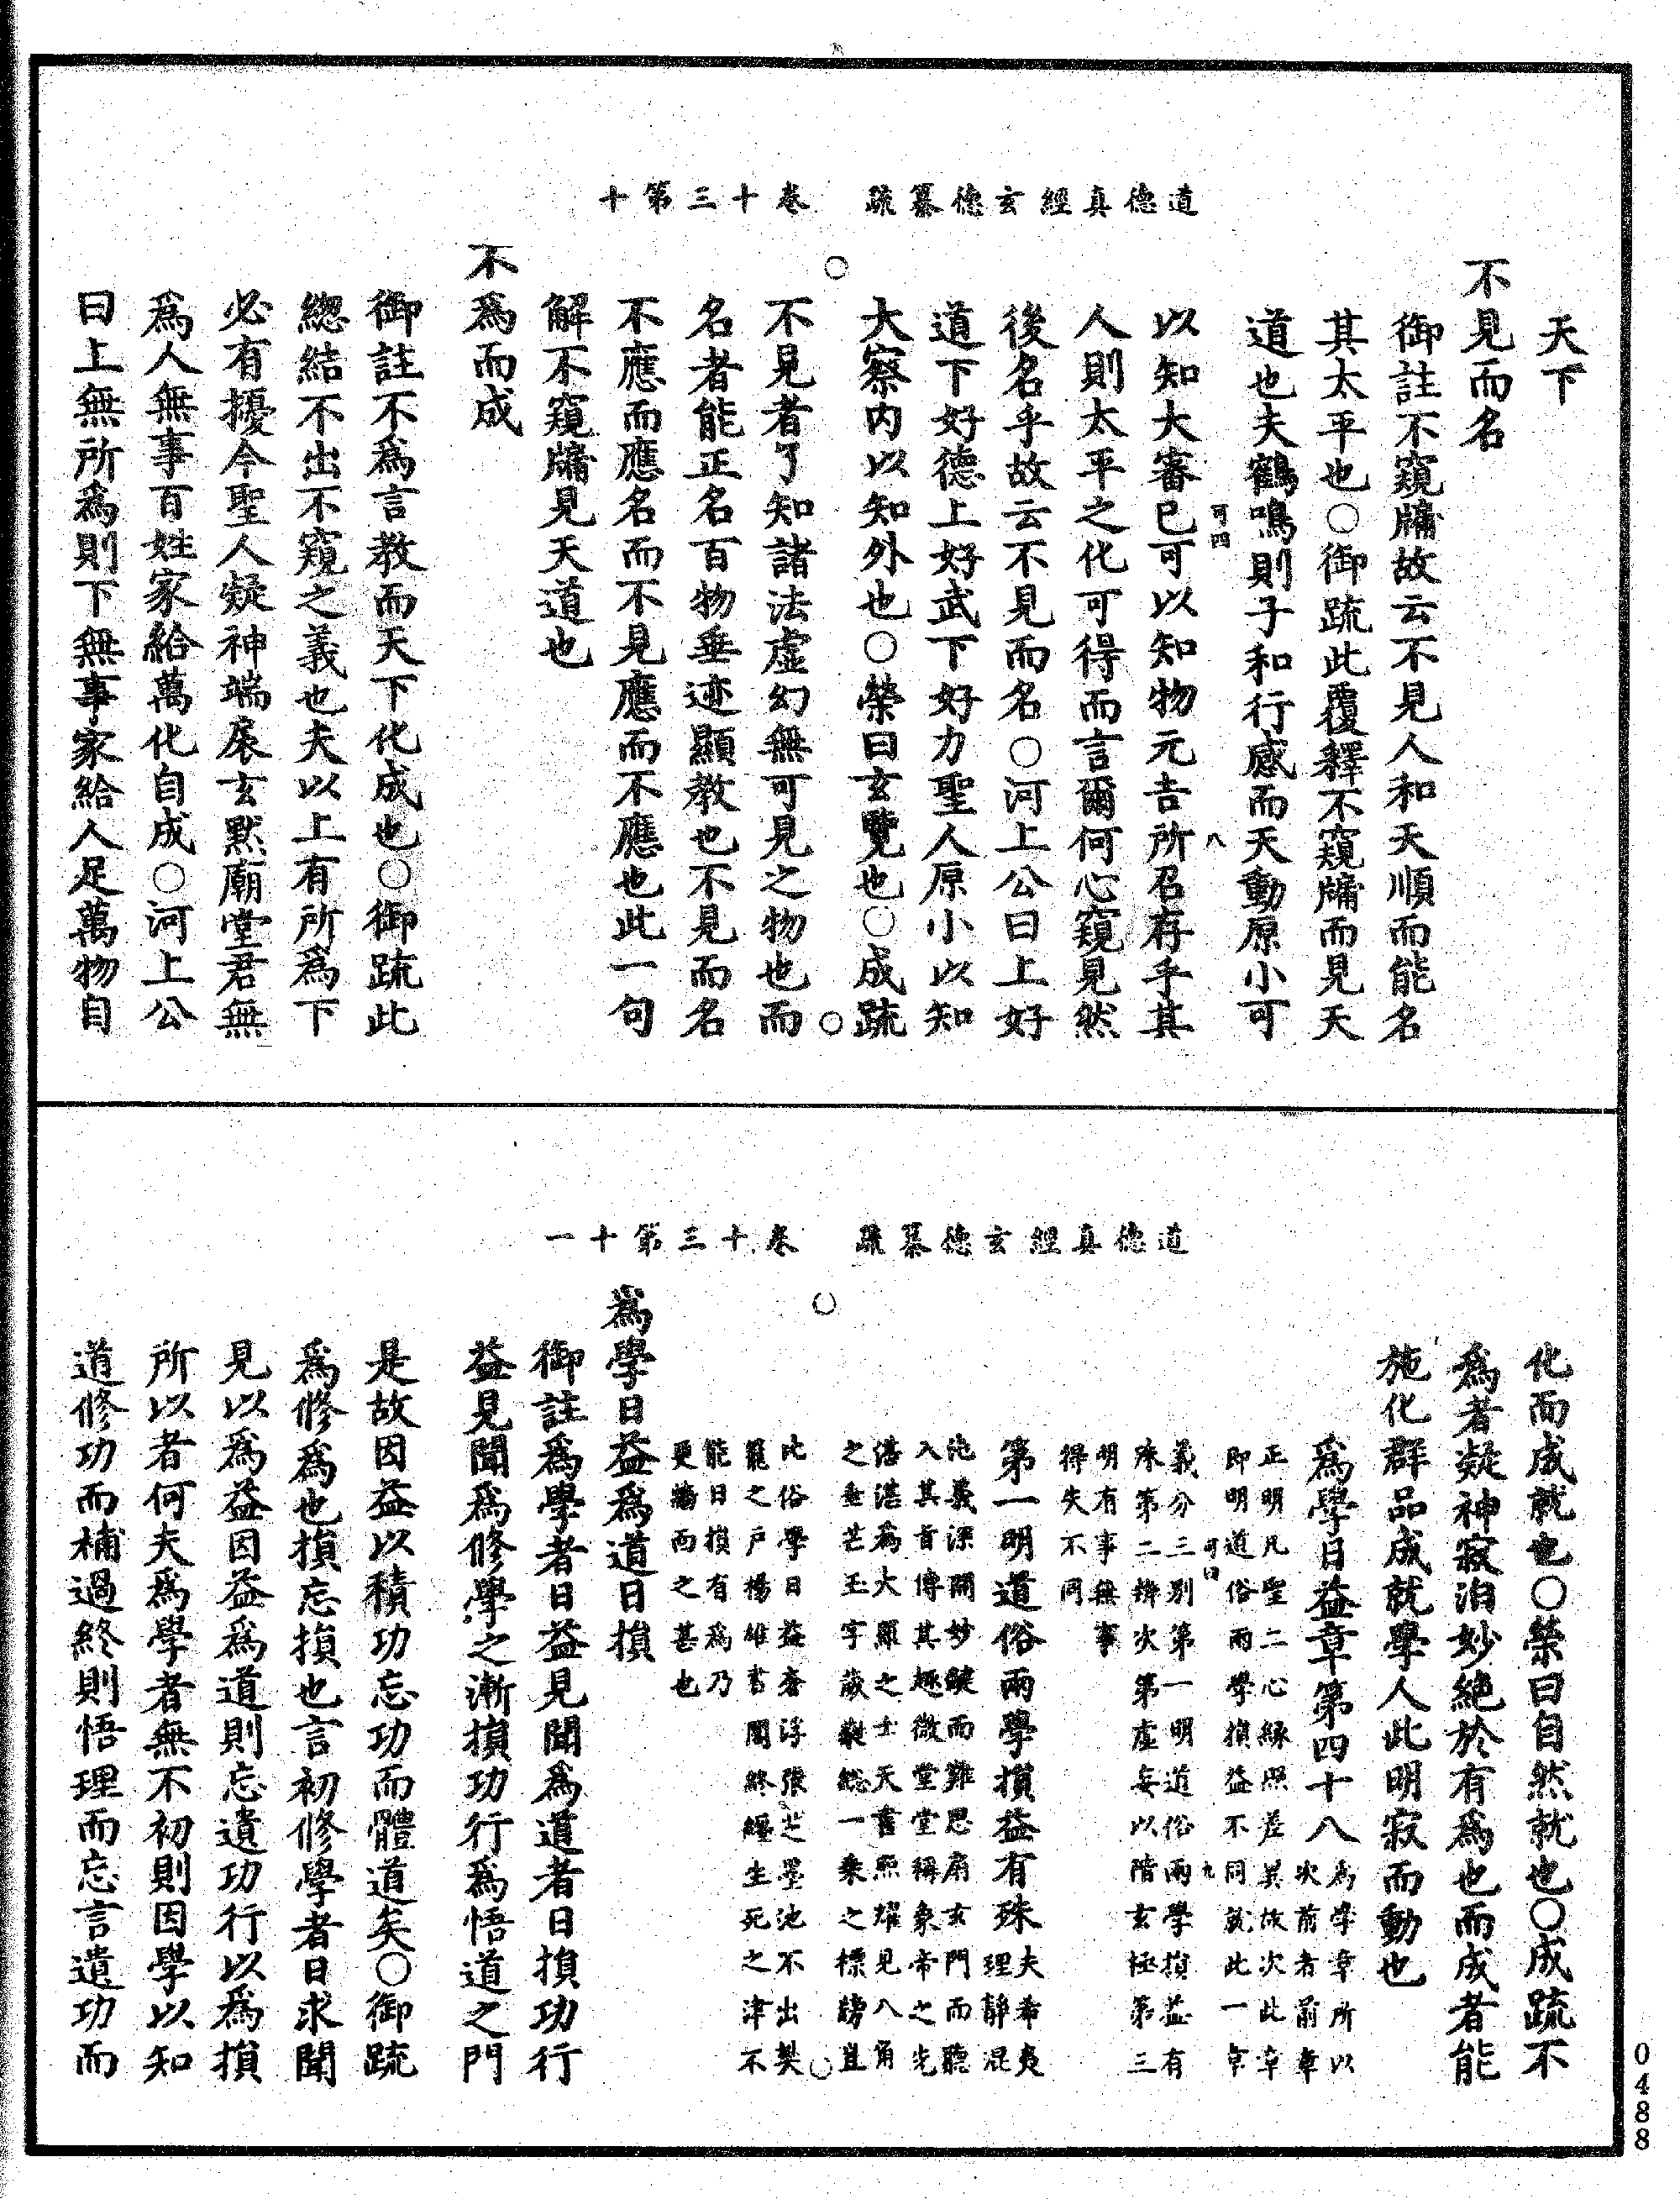 道德真經玄德纂疏　卷十三第十
天下
不見而名
御註不窺牖故云不見人和天順而能名
其太平也○御疏此覆釋不窺牖而見天
道也夫鶴鳴則子和行感而天動原小可
可四　八
以知大審已可以知物元吉所召存乎其
人則太平之化可得而言爾何心窺見然
後名乎故云不見而名○河上公曰上好
道下好德上好武下好力聖人原小以知
大察内以知外也○榮曰玄覽也○成疏
不見者了知諸法虛幻無可見之物也而
名者能正名百物垂迹顯教也不見而名
不應而應名而不見應而不應也此一句
解不窺牖見天道也
不為而成
御註不為言教而天下化成也○御疏此
總結不出不窺之義也夫以上有所為下
必有擾今聖人疑神端扆玄默廟堂君無
為人無事百姓家給萬化自成○河上公
曰上無所為則下無事家給人足萬物自
道德真經玄德纂疏　卷十三第十一
化而成就也○榮曰自然就也○成疏不
為者凝神寂泊妙絕於有為也而成者能
施化群品成就學人此明寂而動也
為學日益章第四十八
為學章所以
次前者前章
正明凡聖二心緣照差異故次此章
即明道俗兩學損益不同就此一章
可四　九
義分三別第一明道俗兩學損益有
殊第二辨次第虛妄以階玄極第三
明有事無事
得失不同
第一明道俗兩學損益有殊
夫希夷
理靜混
沌義深關妙鍵而難思扃玄門而聽
入其音傳其趣微堂堂稱象帝之先
湛湛為大羅之士天書熙耀見八角
之垂芒玉字葳蕤總一乘之標牓豈
比俗學日益奢浮張芝墨池不出樊
籠之戶楊雄書閣終纏生死之津不
能日損有為乃
更牆而之甚也
為學日益為道日損
御註為學者日益見聞為道者日損功行
益見聞為修學之漸損功行為悟道之門
是故因益以積功忘功而體道矣○御疏
為修為也損忘損也言初修學者日求聞
見以為益因益為道則忘遺功行以為損
所以者何夫為學者無不初則因學以知
道修功而補過終則悟理而忘言遺功而
0488